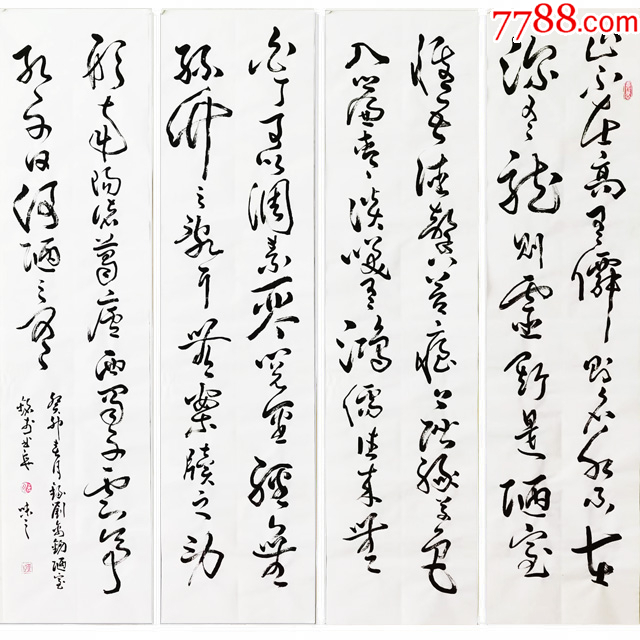 7788.com
山不在高有僊則名水不在
深有龍則靈斯是陋室
惟吾德馨苔痕上階綠草色
入簾青談笑有鴻儒往來無
白丁可以調素琴閱金經無
絲竹之亂耳無案牘之勞
形南陽諸葛廬西蜀子雲亭
孔子曰何陋之有
癸卯春月錄劉禹錫陋室
銘